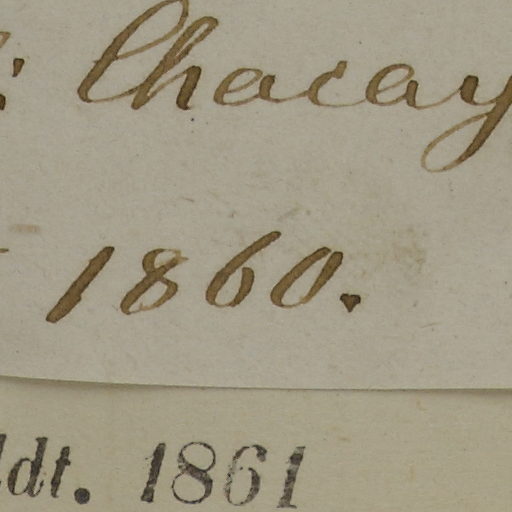 : Chacay
1860.
ldt. 1861